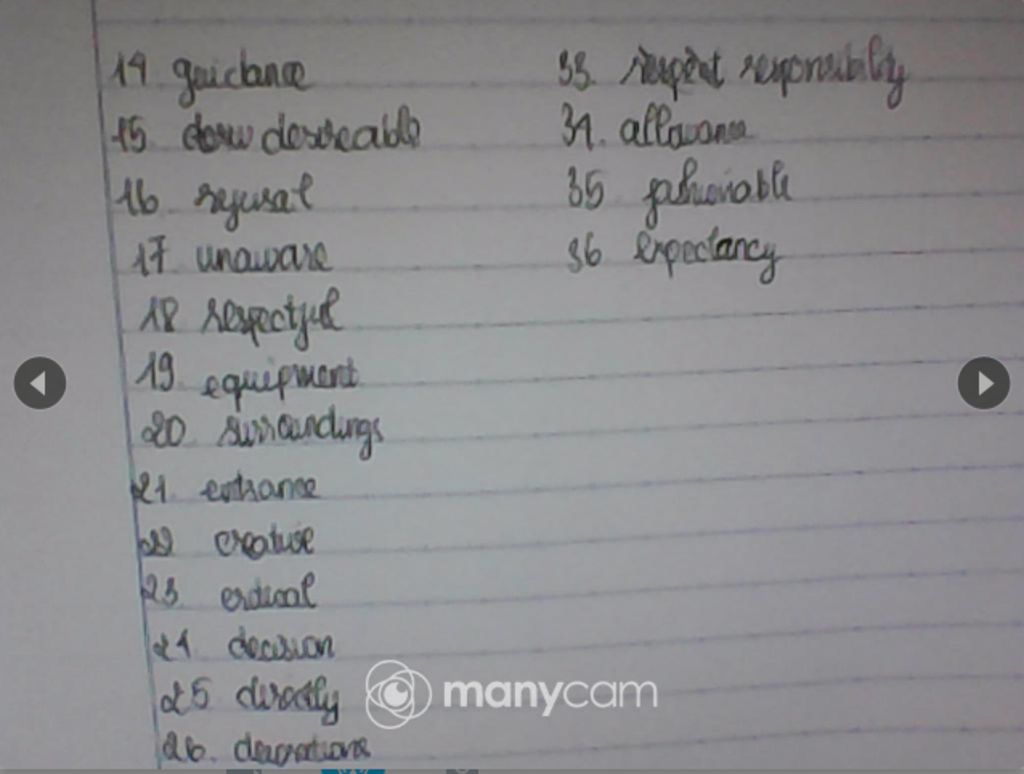 14 guidance
15. desireable
16 refusal
17 unaware
18 respectful
19 equipment
20 surroundings
21 entrance
22 creative
23
24. decision
25 directly
26. decorations
33. responsibility
34. allowance
35 fashionable
36 expectancy
manycam